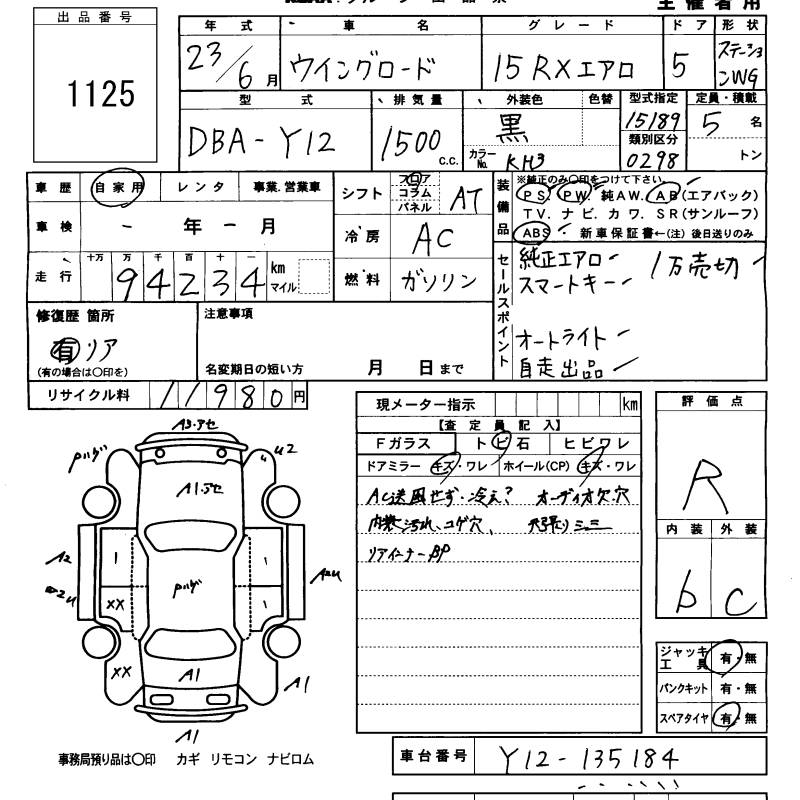 主催者用
出品番号
1125
年式 車名 グレード ドア 形状
23/6月 ウイングロード 15RXエアロ 5 ステーションWG
型式 排気量 外装色 色替 型式指定 定員・積載
DBA-Y12 1500 c.c. 黒 15189 5名
カラーNo. KH3 類別区分 0298 トン
車歴 自家用 レンタ 事業.営業車
シフト フロア コラム パネル AT
装備品 ※純正のみ〇印をつけて下さい。
PS. PW. 純AW. AB(エアバック)
TV. ナビ. カワ. SR(サンルーフ)
ABS. 新車保証書←(注) 後日送りのみ
車検 - 年 - 月
冷房 AC
走行 十万 万 千 百 十 一 km マイル
94234
燃料 ガソリン
セールスポイント
純正エアロ 1万売切
スマートキー
オートライト
自走出品
修復歴 箇所
有 リア
(有の場合は〇印を)
注意事項
名変期日の短い方 月 日まで
リサイクル料 11980円
現メーター指示 km
【査定員記入】
Fガラス トビ石 ヒビワレ
ドアミラー キズ・ワレ ホイール(CP) キズ・ワレ
AC送風せず・冷え? オーディオ欠.穴
内装汚れ、コゲ穴、
リアイーナーBP
評価点
R
内装 外装
b C
ジャッキ工具 有・無
パンクキット 有・無
スペアタイヤ 有・無
A3.アセ
ペハゲ
U2
A1.アセ
A2
XX
ペハゲ
XX
A1
A1
A1
事務局預り品は〇印 カギ リモコン ナビロム
車台番号 Y12-135184